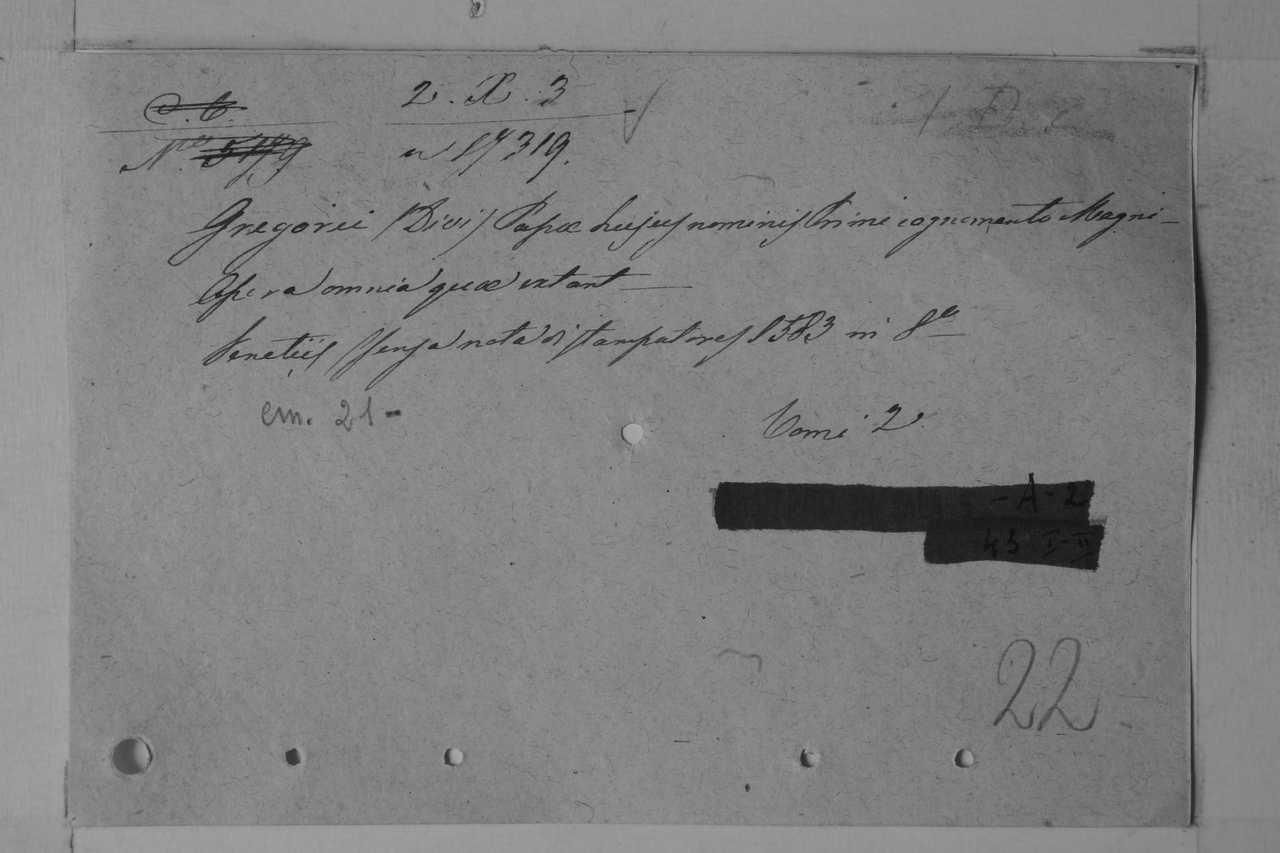 2. X. 3
No. 5179 n 17319.
Gregorii (Divi) Papæ hujus nominis Primi cognomento Magni
Opera omnia quæ extant
Venetiis (senza nota di stampatore) 1583 in 8º
em. 21-
Tomi 2
-A-2
43 I-II
22